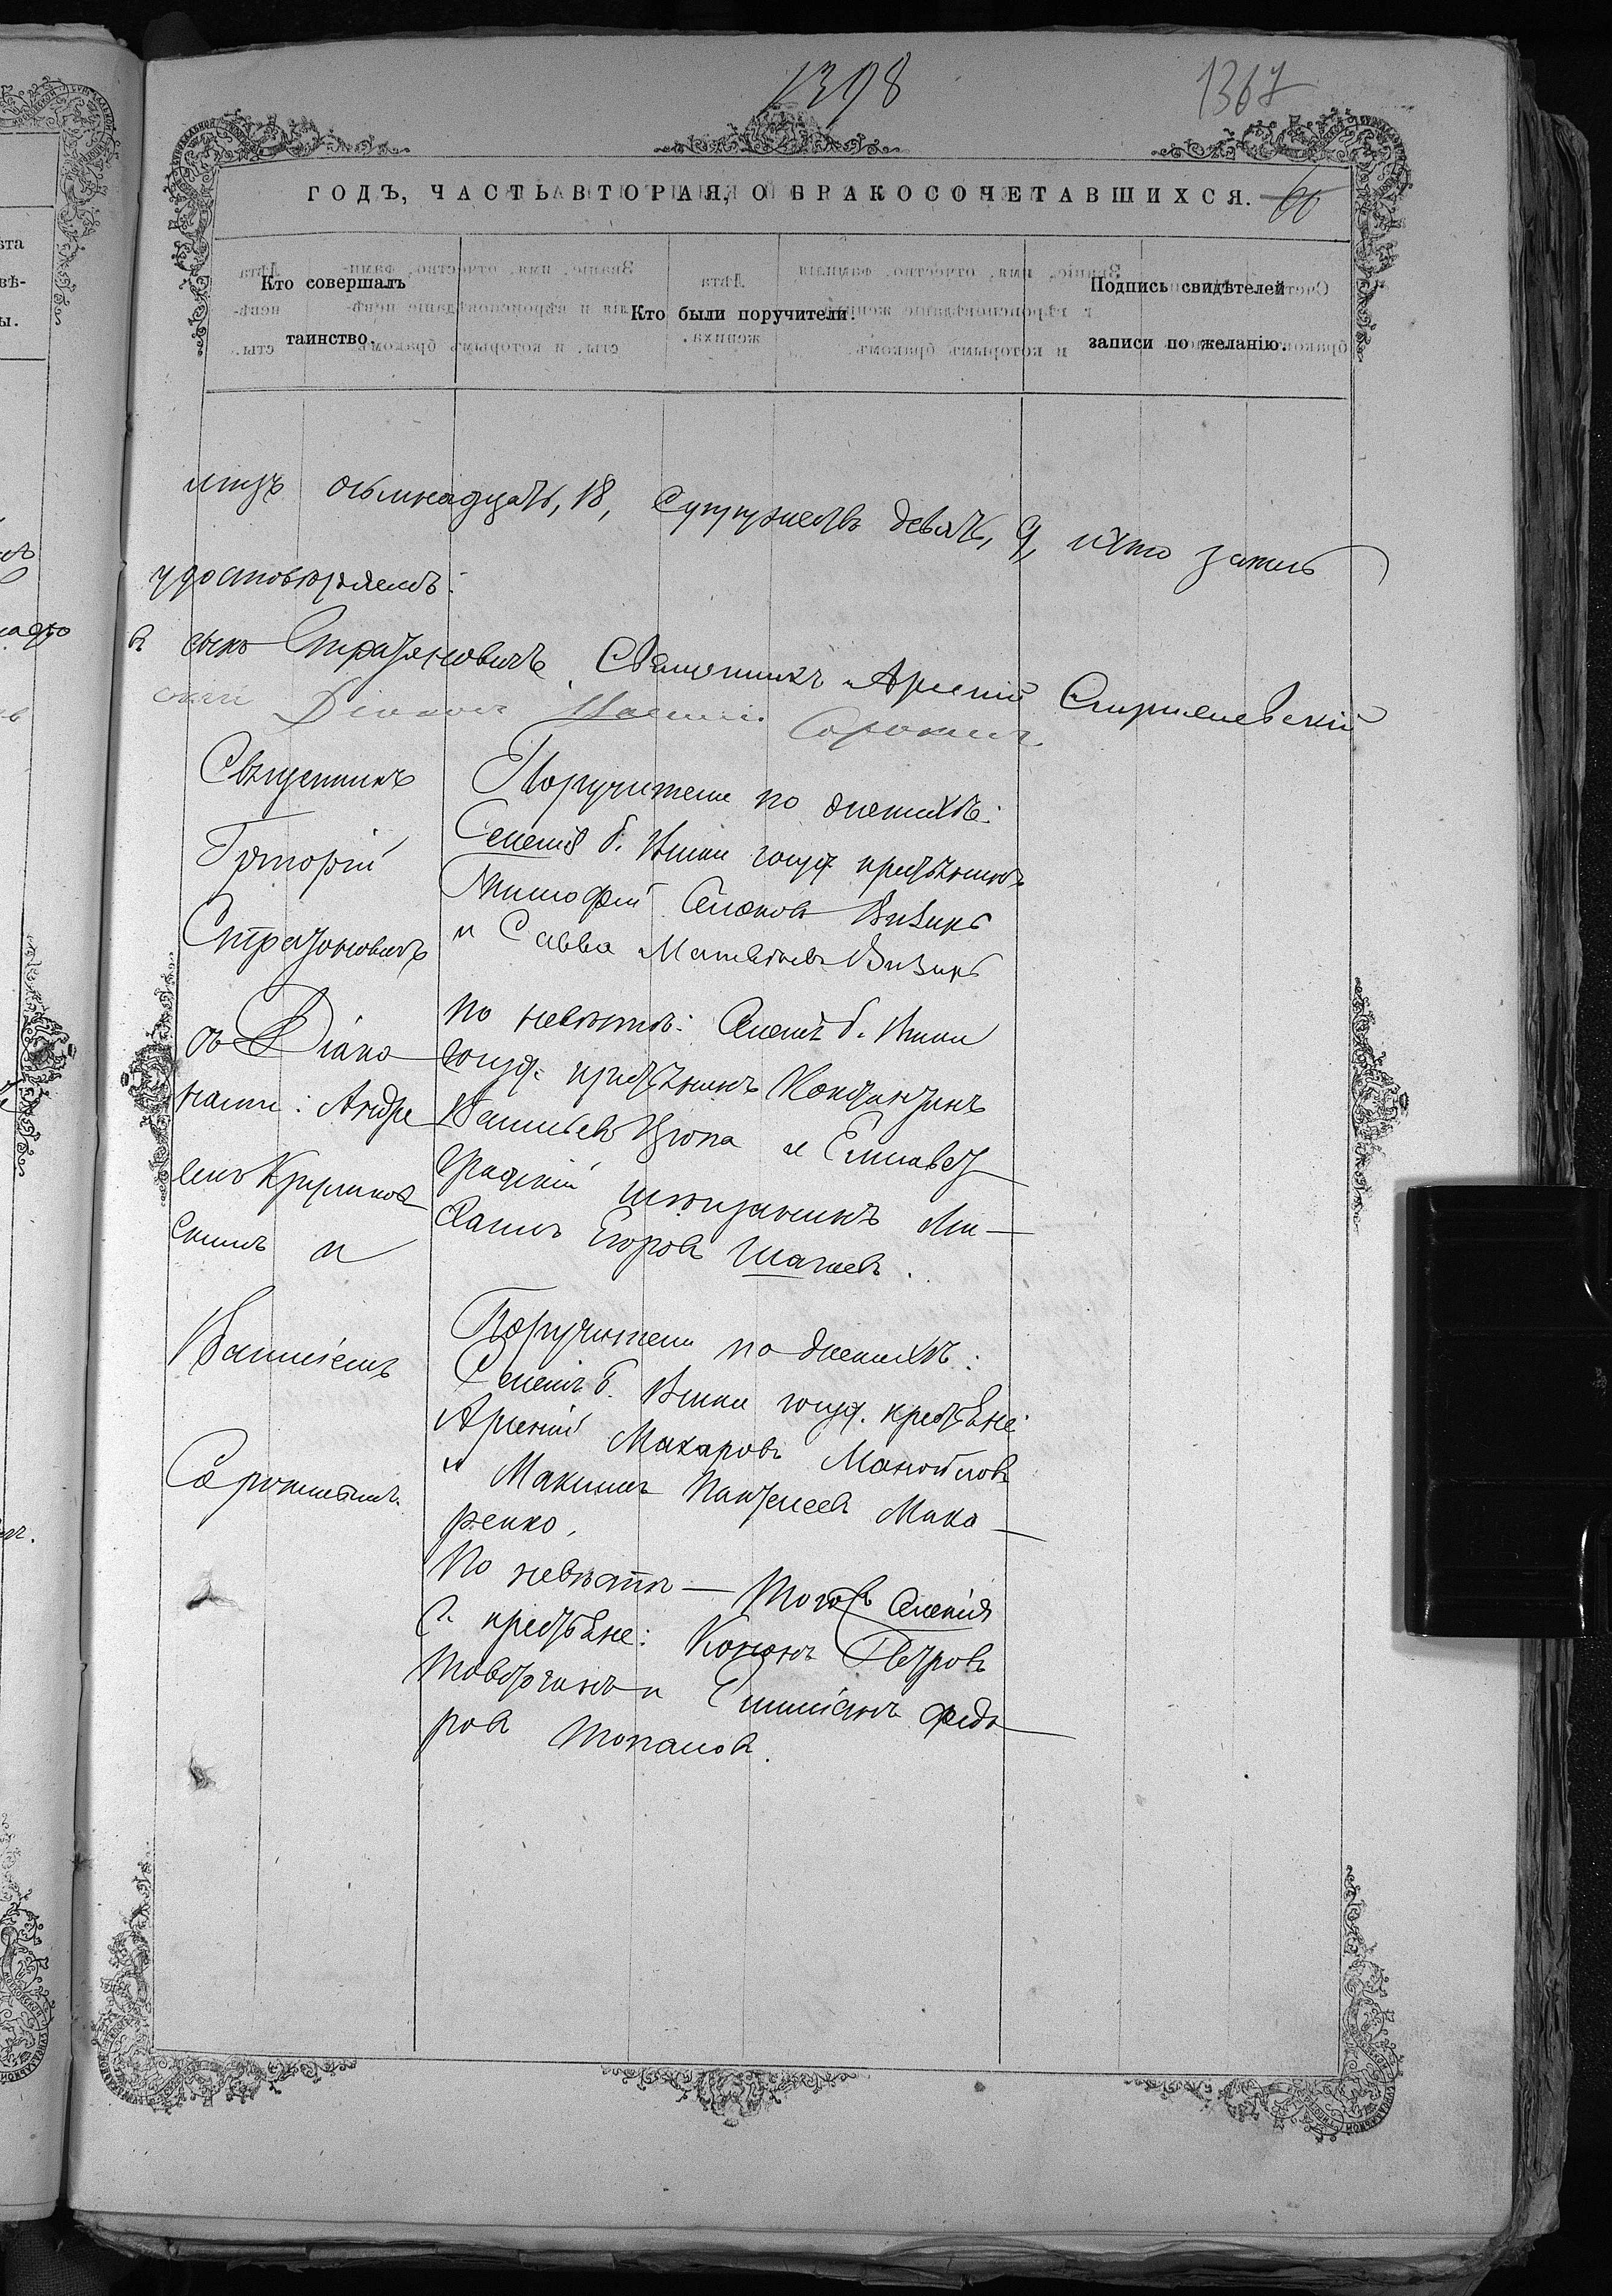 1398
1367
ГОДЪ, ЧАСТЬ ВТОРАЯ, О БРАКОСОЧЕТАВШИХСЯ. 66
Кто совершалъ таинство.
Кто были поручители.
Подпись свидѣтелей записи по желанію.
лицъ осьмнадцать, 18, супружествъ девять, 9,
удостовѣряемъ:
Стратоновичъ. Священникъ Арсеній
Діаконъ Василій Сорокинъ
Священникъ
Григорій
Стратоновичъ
съ Діако
нами: Андре
емъ Крыжанов
скимъ и
Василіемъ
Сорокинымъ.
Поручители по женихѣ:
Селенія б. Виски госуд. крестьянинъ
Тимофей Визиръ
и Савва Матвѣевъ Визиръ
по невѣстѣ: Селенія б. Виски
госуд. крестьянинъ Константинъ
Васильевъ и Елисавет
градскій мѣщанинъ
Егоровъ
Поручители по женихѣ:
Селенія б. Виски госуд. крестьяне:
Арсеній Макаровъ Манойловъ
и Максимъ Пантелеевъ Мака
ренко.
По невѣстѣ — того селенія
г. крестьяне: Кононъ Петровъ
и Емиліанъ Федо
ровъ Топаловъ.